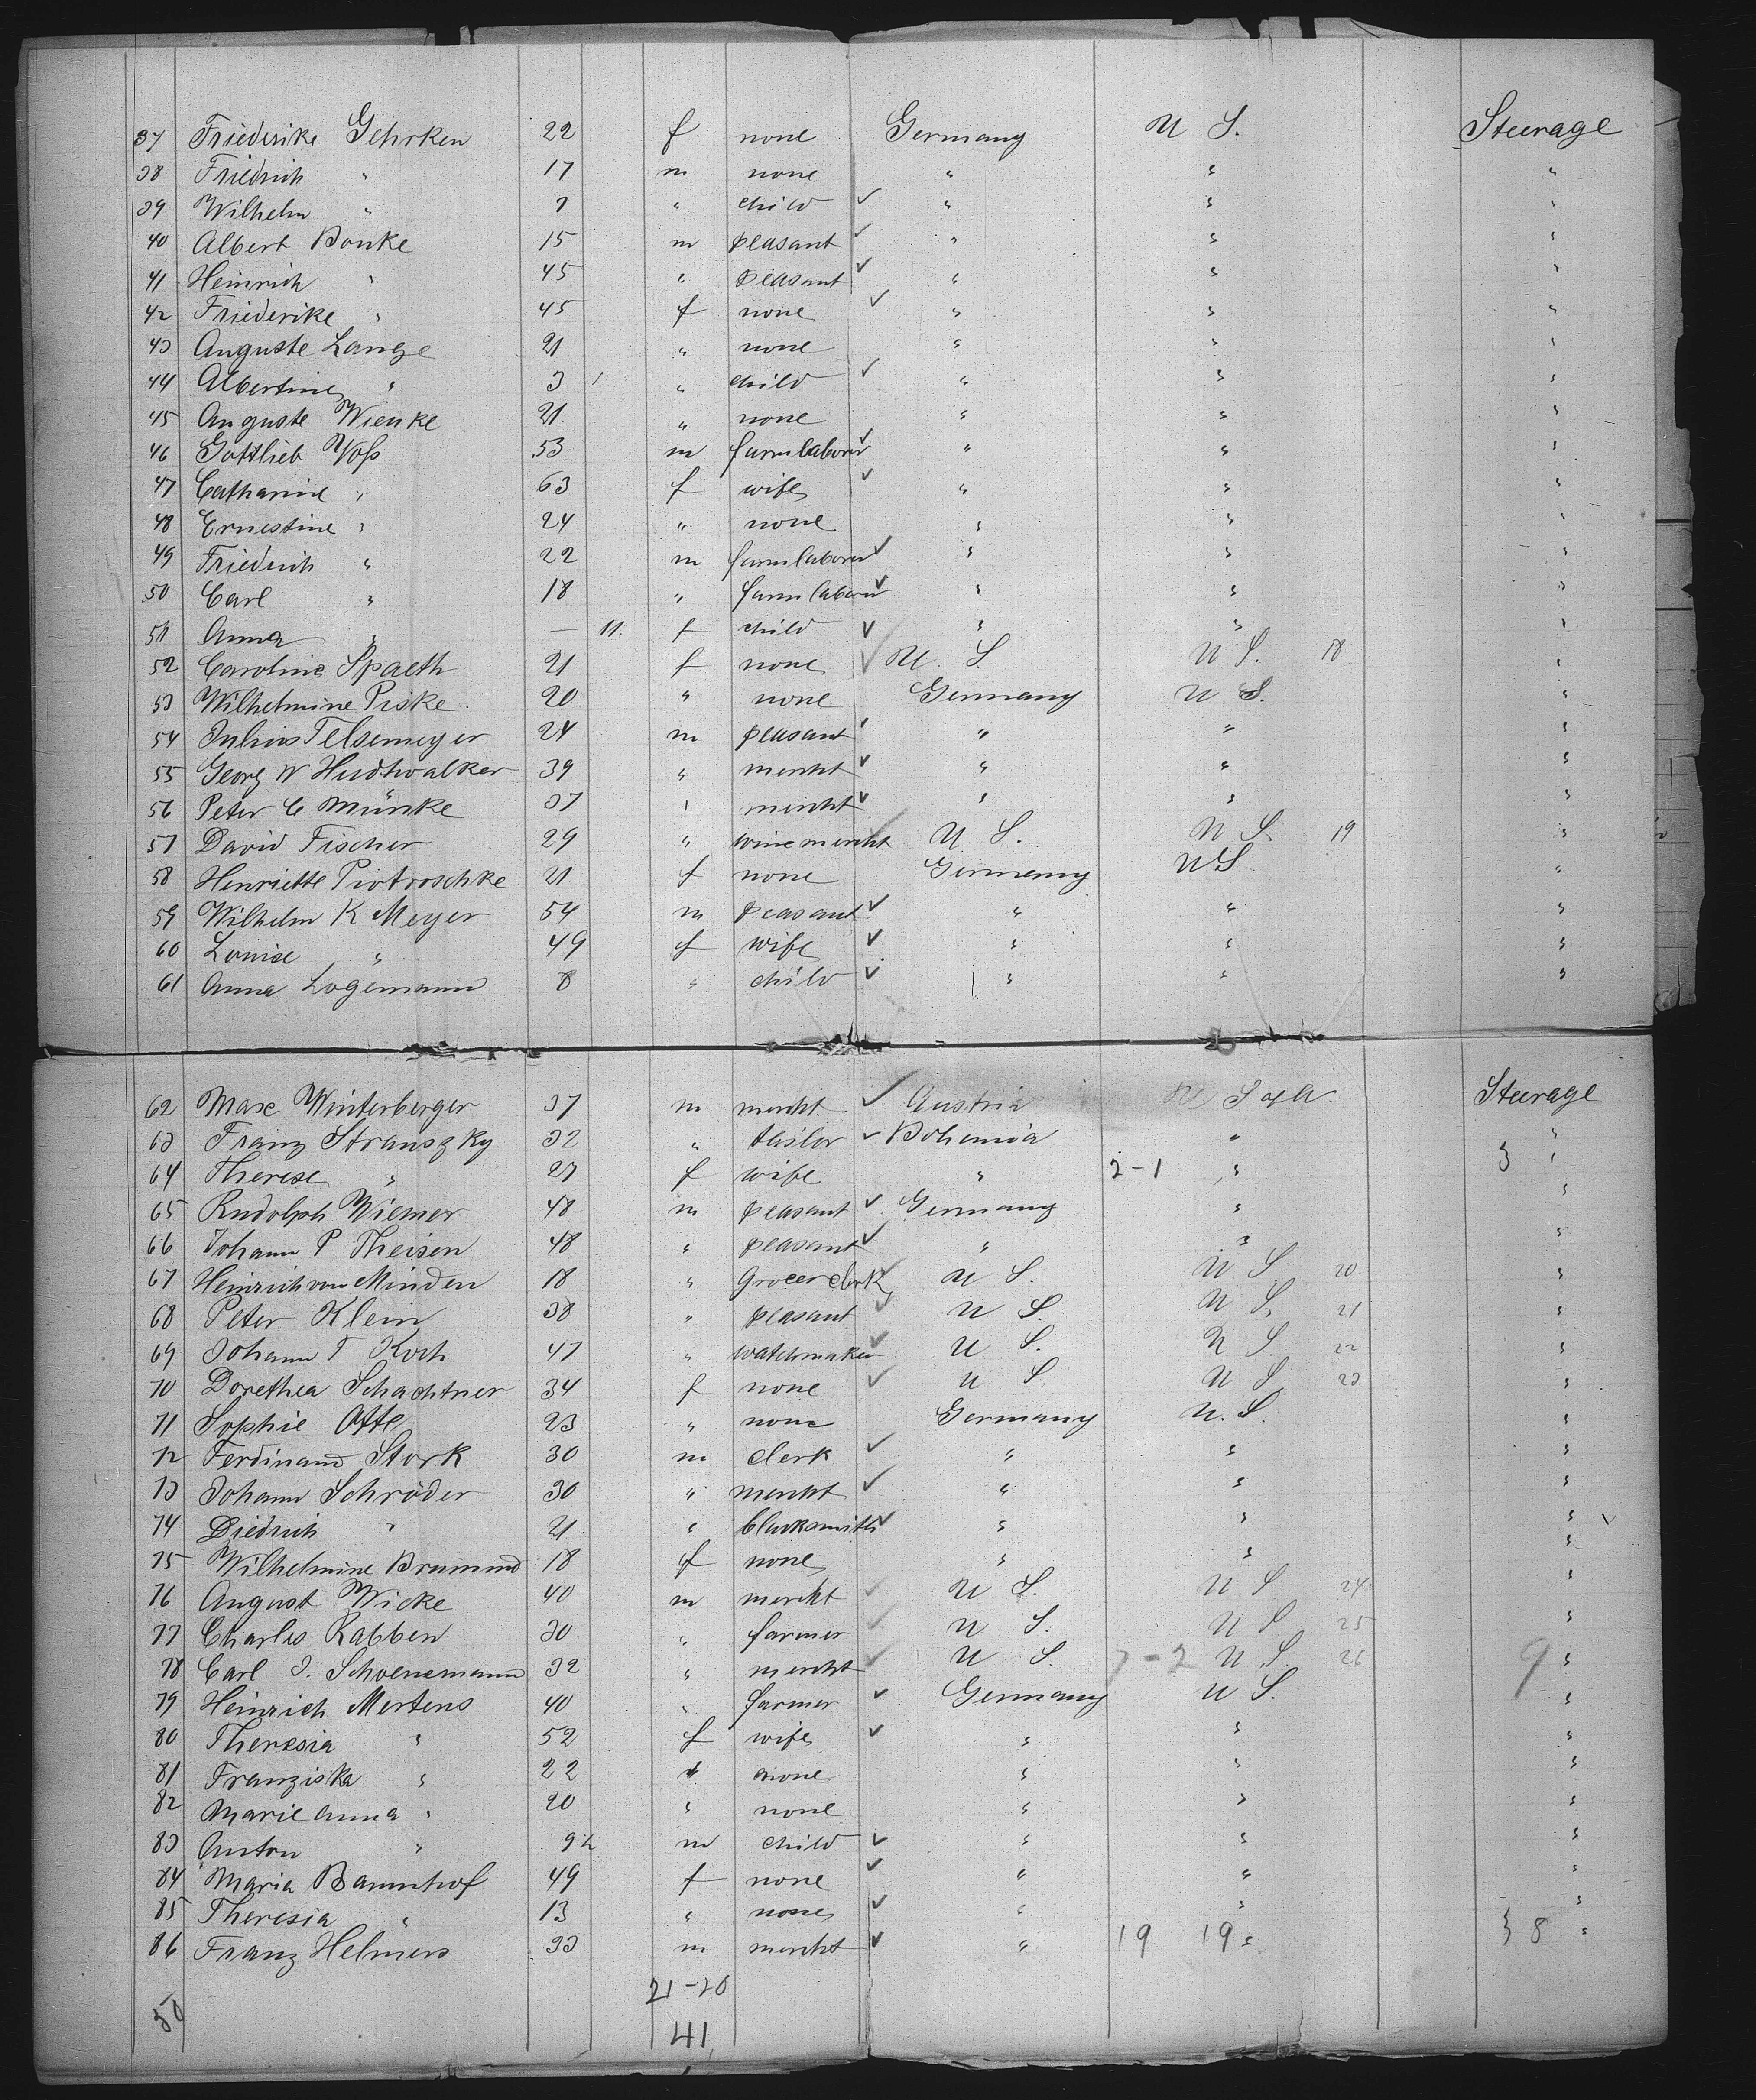 37 Friederike Gehrken 22 f none Germany U S. Steerage
38 Friedrich " 17 m none " " "
39 Wilhelm " 7 " child ✓ " " "
40 Albert Bonke 15 m peasant ✓ " " "
41 Heinrich " 45 " peasant ✓ " " "
42 Friederike " 45 f none ✓ " " "
43 Auguste Lange 21 " none " " "
44 Albertine " 3 " child ✓ " " "
45 Auguste Wienke 21 " none " " "
46 Gottlieb Voß 53 m farmlaborer ✓ " " "
47 Catharine " 63 f wife ✓ " " "
48 Ernestine " 24 " none " " "
49 Friedrich " 22 m farmlaborer ✓ " " "
50 Carl " 18 " farmlaborer ✓ " " "
51 Anna " — 11. f child ✓ " " "
52 Caroline Spaeth 21 f none ✓ U. S. U S. 18 "
53 Wilhelmine Piske 20 " none Germany U S. "
54 Julius Telsemeyer 24 m peasant ✓ " " "
55 Georg W Hudtwalker 39 " mercht ✓ " " "
56 Peter C Münke 37 " mercht ✓ " " "
57 David Fischer 29 " winemercht ✓ U S. U S. 19 "
58 Henriette Piotroschke 21 f none Germany U S. "
59 Wilhelm K Meyer 54 m peasant ✓ " " "
60 Louise " 49 f wife ✓ " " "
61 Anna Logemann 8 " child ✓ " " "
62 Max Winterberger 37 m mercht ✓ Austria Steerage
63 Franz Strauszky 32 " tailor ✓ Bohemia " "
64 Therese " 27 f wife " 2-1 " 3 "
65 Rudolph Wiemer 48 m peasant ✓ Germany " "
66 Johann P Theisen 48 " peasant ✓ " " "
67 Heinrich von Minden 18 " Grocerclerk ✓ U S. U S 20 "
68 Peter Klein 38 " peasant ✓ U S. U S. 21 "
69 Johann T Koch 47 " watchmaker ✓ U S. U S. 22 "
70 Dorethea Schachtner 34 f none ✓ U S. U S. 23 "
71 Sophie Otte 23 " none Germany U. S. "
72 Ferdinand Stork 30 m clerk ✓ " " "
73 Johann Schröder 30 " mercht ✓ " " "
74 Diedrich " 21 " blacksmith ✓ " " "
75 Wilhelmine Brumund 18 f none " " "
76 August Wicke 40 m mercht ✓ U S. U S 24 "
77 Charles Rabben 30 " farmer ✓ U S. U S 25 "
78 Carl J. Schoenemann 32 " mercht ✓ U S. 7-2 U S. 26 9 "
79 Heinrich Mertens 40 " farmer ✓ Germany U S. "
80 Theresia " 52 f wife ✓ " " "
81 Franziska " 22 " none " " "
82 Marie Anna " 20 " none " " "
83 Anton " 9 m child ✓ " " "
84 Maria Baumhof 49 f none ✓ " " "
85 Theresia " 13 " none ✓ " " "
86 Franz Helmers 33 m mercht ✓ " 19 19 " 8 "
21-20
50 41